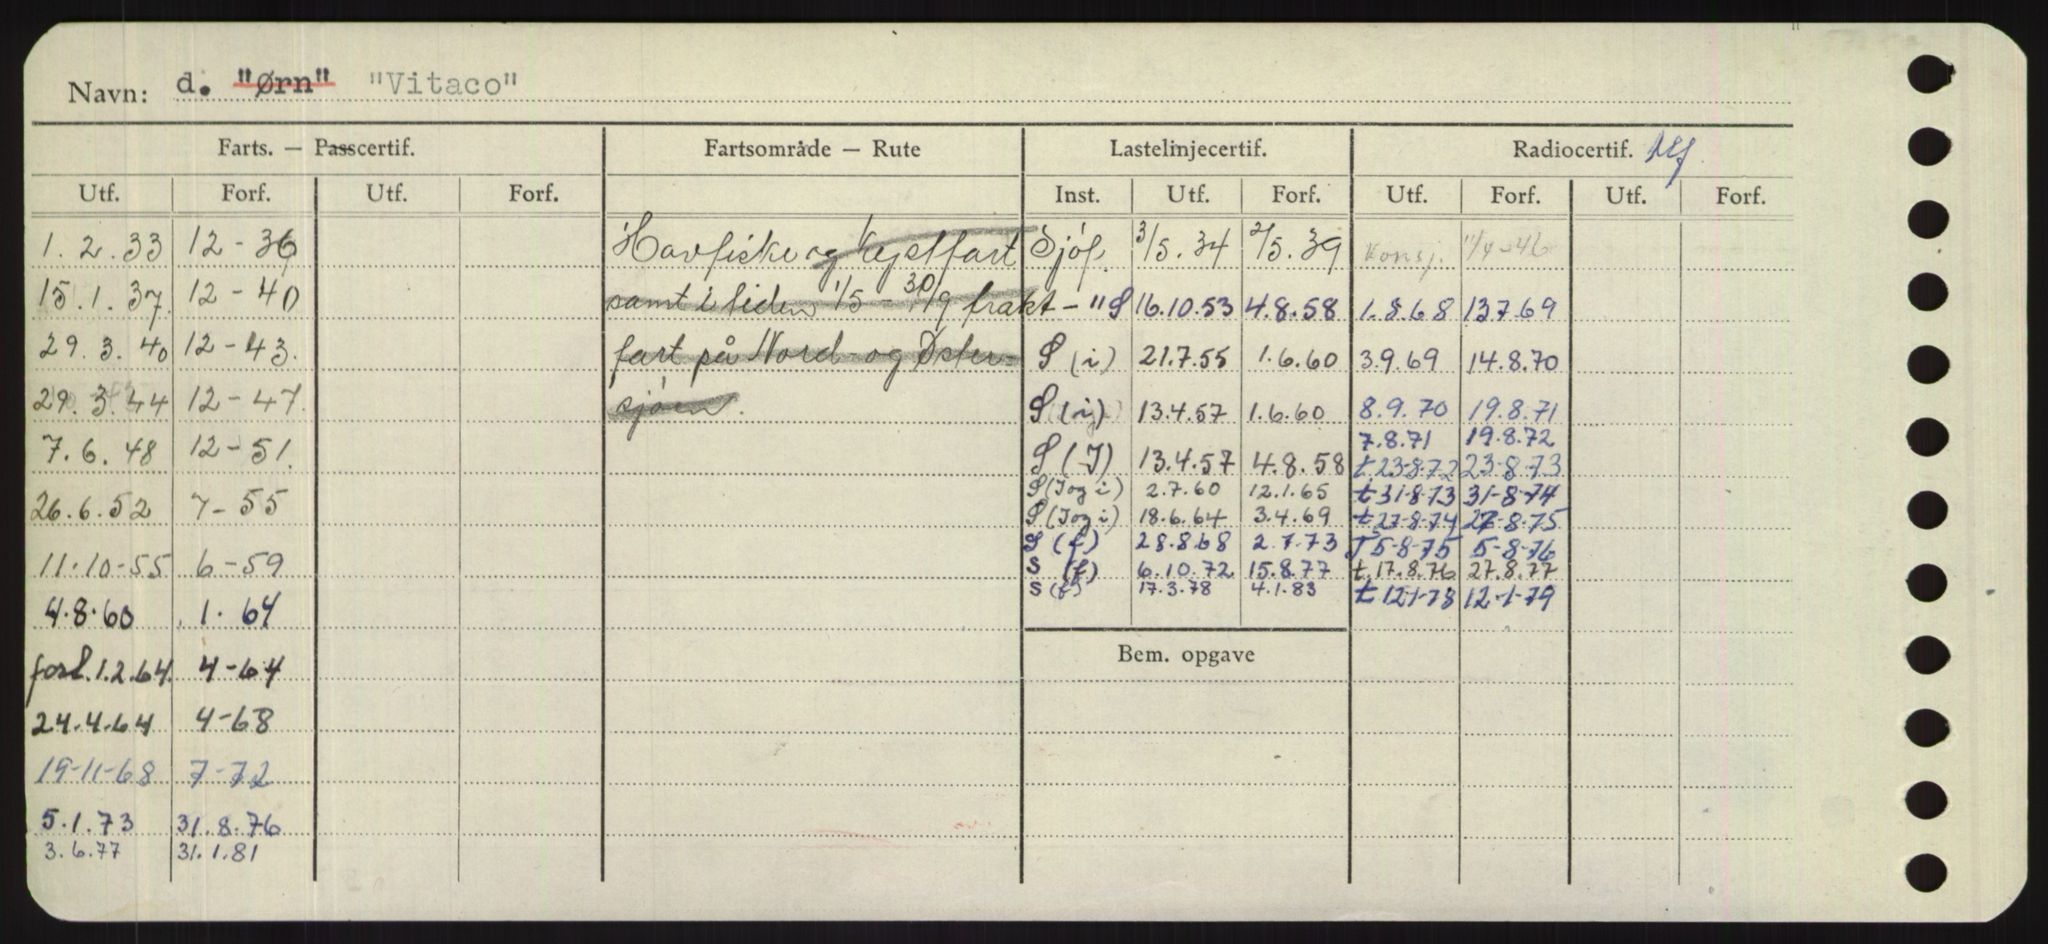 Navn: d. "Ørn" "Vitaco"
Farts. — Passcertif. Fartsområde — Rute Lastelinjecertif. Radiocertif.
Utf. Forf. Utf. Forf. Inst. Utf. Forf. Utf. Forf. Utf. Forf.
1.2.33 12-36 Havfiske og Kystfart Sjøf. 3/5.34 2/5.39 Konsj. 11/4-46
15.1.37. 12-40 samt i tiden 1/5 - 30/9 frakt- "S 16.10.53 4.8.58 1.8.68 13769
29.3.40 12-43. fart på Nord- og Øster- S (i) 21.7.55 1.6.60 3.9.69 14.8.70
29.3.44 12-47. sjøen. S (i) 13.4.57 1.6.60 8.9.70 19.8.71
7.8.71 19.8.72
7.6.48 12-51. S (I) 13.4.57 4.8.58 t.23-8-72 23-8-73
S (I og i) 2.7.60 12.1.65 t 31-8-73 31-8-74
26.6.52 7-55 S (I og i) 18.6.64 3.4.69 t 27-8-74 27-8-75
S (f) 28.8.68 2.7.73 T 5-8-75 5-8-76
11-10-55 6-59 S (f) 6.10.72 15.8.77 t.17.8.76 27.8.77
S (f) 17.3.78 4.1.83 t 12-1-78 12-1-79
4.8.60 1.64
Bem. opgave
forl. 1.2.64. 4-64
24.4.64 4-68
19-11-68 7-72
5.1.73 31.8.76
3.6.77 31.1.81